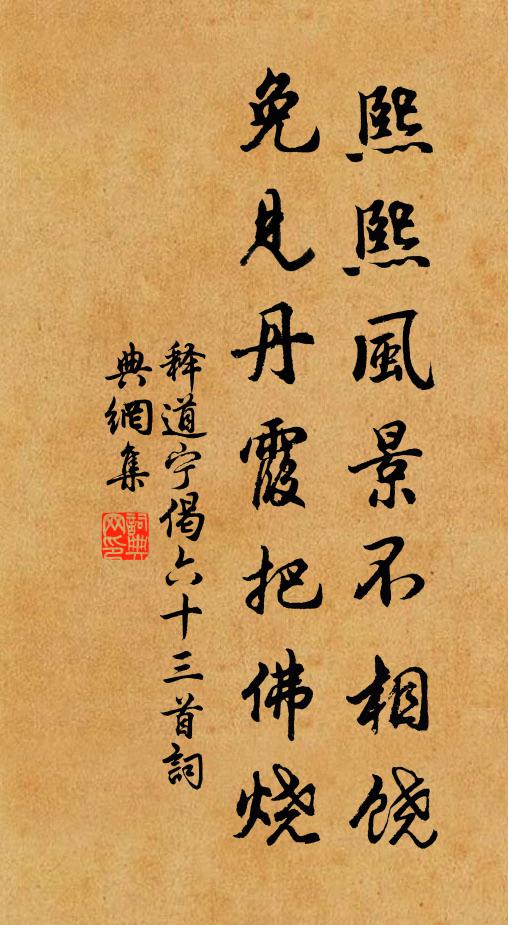 熙熙風景不相饶
免見丹霞把佛烧
释道宁偈六十三首詞
典網集
詞典
网印